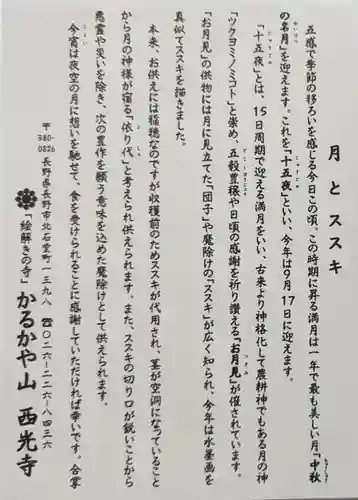 月とススキ
五感で季節の移ろいを感じる今日この頃。この時期に昇る満月は一年で最も美しい月「中秋
の名月」を迎えます。これを「十五夜」といい、今年は９月１７日に迎えます。
「十五夜」とは、１５日周期で迎える満月をいい、古来より神格化して農耕神でもある月の神
「ツクヨミノミコト」と崇め、五穀豊穣や日頃の感謝を祈り讃える「お月見」が催されています。
「お月見」の供物には月に見立てた「団子」や魔除けの「ススキ」が広く知られ、今年は水墨画を
真似てススキを描きました。
本来、お供えには稲穂なのですが収穫前のためススキが代用され、茎が空洞になっていること
から月の神様が宿る「依り代」と考えられ供えられます。また、ススキの切り口が鋭いことから
悪霊や災いを除き、次の豊作を願う意味を込めた魔除けとして供えられます。
今宵は夜空の月に想いを馳せて、食を受けられることに感謝していただければ幸いです。合掌
〒380-0826 長野県長野市北石堂町一三九八 ☎〇二六-二二六-八四三六
「絵解きの寺」かるかや山 西光寺